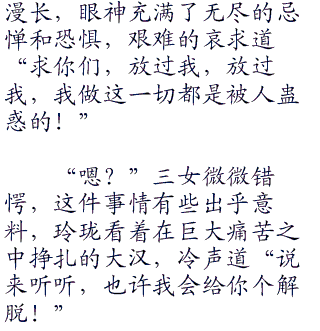 漫长，眼神充满了无尽的忌
惮和恐惧，艰难的哀求道
“求你们，放过我，放过
我，我做这一切都是被人蛊
惑的！”
“嗯？”三女微微错
愕，这件事情有些出乎意
料，玲珑看着在巨大痛苦之
中挣扎的大汉，冷声道“说
来听听，也许我会给你个解
脱！”